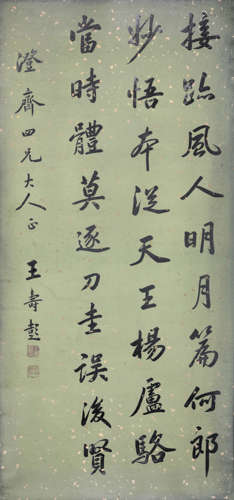 接跡風人明月篇何郎
妙悟本從天王楊盧駱
當時體莫逐刀圭誤後賢
澄齊四兄大人正
王壽彭